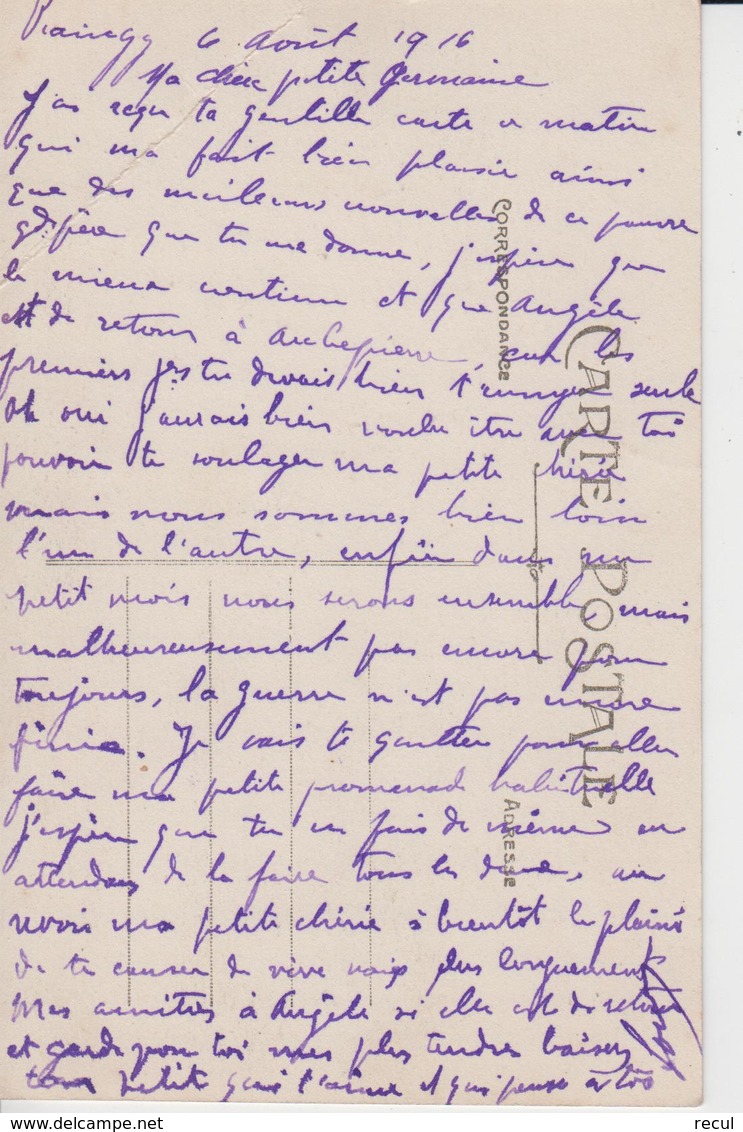 6 août 1916
Ma chère petite Germaine
J'ai reçu ta gentille carte ce matin
qui m'a fait bien plaisir ainsi
que des meilleurs nouvelles de ce pauvre
gd père que tu me donne, j'espère que
le mieux continue et que Angèle
est de retour à Aubepierre, car les
premiers jrs tu devais bien t'ennuyer seule
Oh oui j'aurais bien voulu être avec toi
pouvoir te soulager ma petite chérie
mais nous sommes bien loin
l'un de l'autre, enfin dans un
petit mois nous serons ensemble, mais
malheureusement pas encore pour
toujours, la guerre n'est pas encore
finie. Je vais te quitter pour aller
faire ma petite promenade habituelle
j'espère que tu en fais de même en
attendant de la faire tous les deux, au
revoir ma petite chérie à bientôt le plaisir
de te causer de vive voix plus longuement
Mes amitiés à Angèle si elle est de retour
et garde pour toi mes plus tendres baisers
ton petit qui t'aime et qui pense à toi
CORRESPONDANCE
CARTE POSTALE
ADRESSE
recul